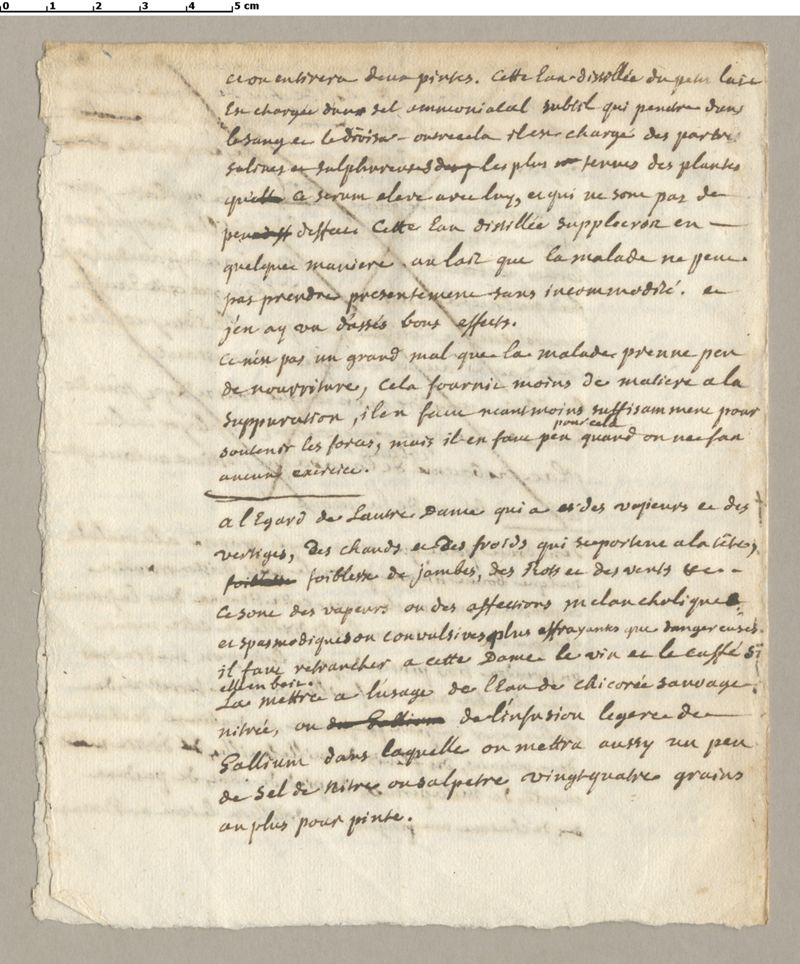 0 1 2 3 4 5 cm
et on en tirera deux pintes. Cette Eau distillée du petit laict
Est chargée d'un sel ammoniacal subtil qui penetre dans
le sang et le divise - outre cela il est chargé des parties
salines et sulphureuses les plus tenues des plantes
que ce serum eleve avec luy, et qui ne sont pas de
peu d'effect Cette Eau distillée suppleeroit en
quelque maniere au lait que la malade ne peut
pas prendre presentement sans incommodité. et
j'en ay vu d'assés bons effects.
Ce n'est pas un grand mal que la malade prenne peu
de nourriture, Cela fournit moins de matiere a la
suppuration, il en faut neantmoins suffisamment pour
soutenir les forces, mais il en faut peu pour cela quand on ne fait
aucun exercice.
a l'Egard de Lautre Dame qui a des vapeurs et des
vertiges, des chauds et des froids qui se portent a la tête,
foiblesse de jambes, des Rots et des vents &c -
Ce sont des vapeurs ou des affections melancholiques
et spasmodiques ou convulsives plus effrayants que dangereuses.
il faut retrancher a cette Dame le vin et le caffé si
elle en boit.
La mettre a l'usage de l'Eau de chicorée sauvage
nitrée, ou du Gallium de l'infusion legere de
Gallium dans laquelle on mettra aussy un peu
de Sel de Nitre ou salpetre vingt-quatre grains
au plus pour pinte.